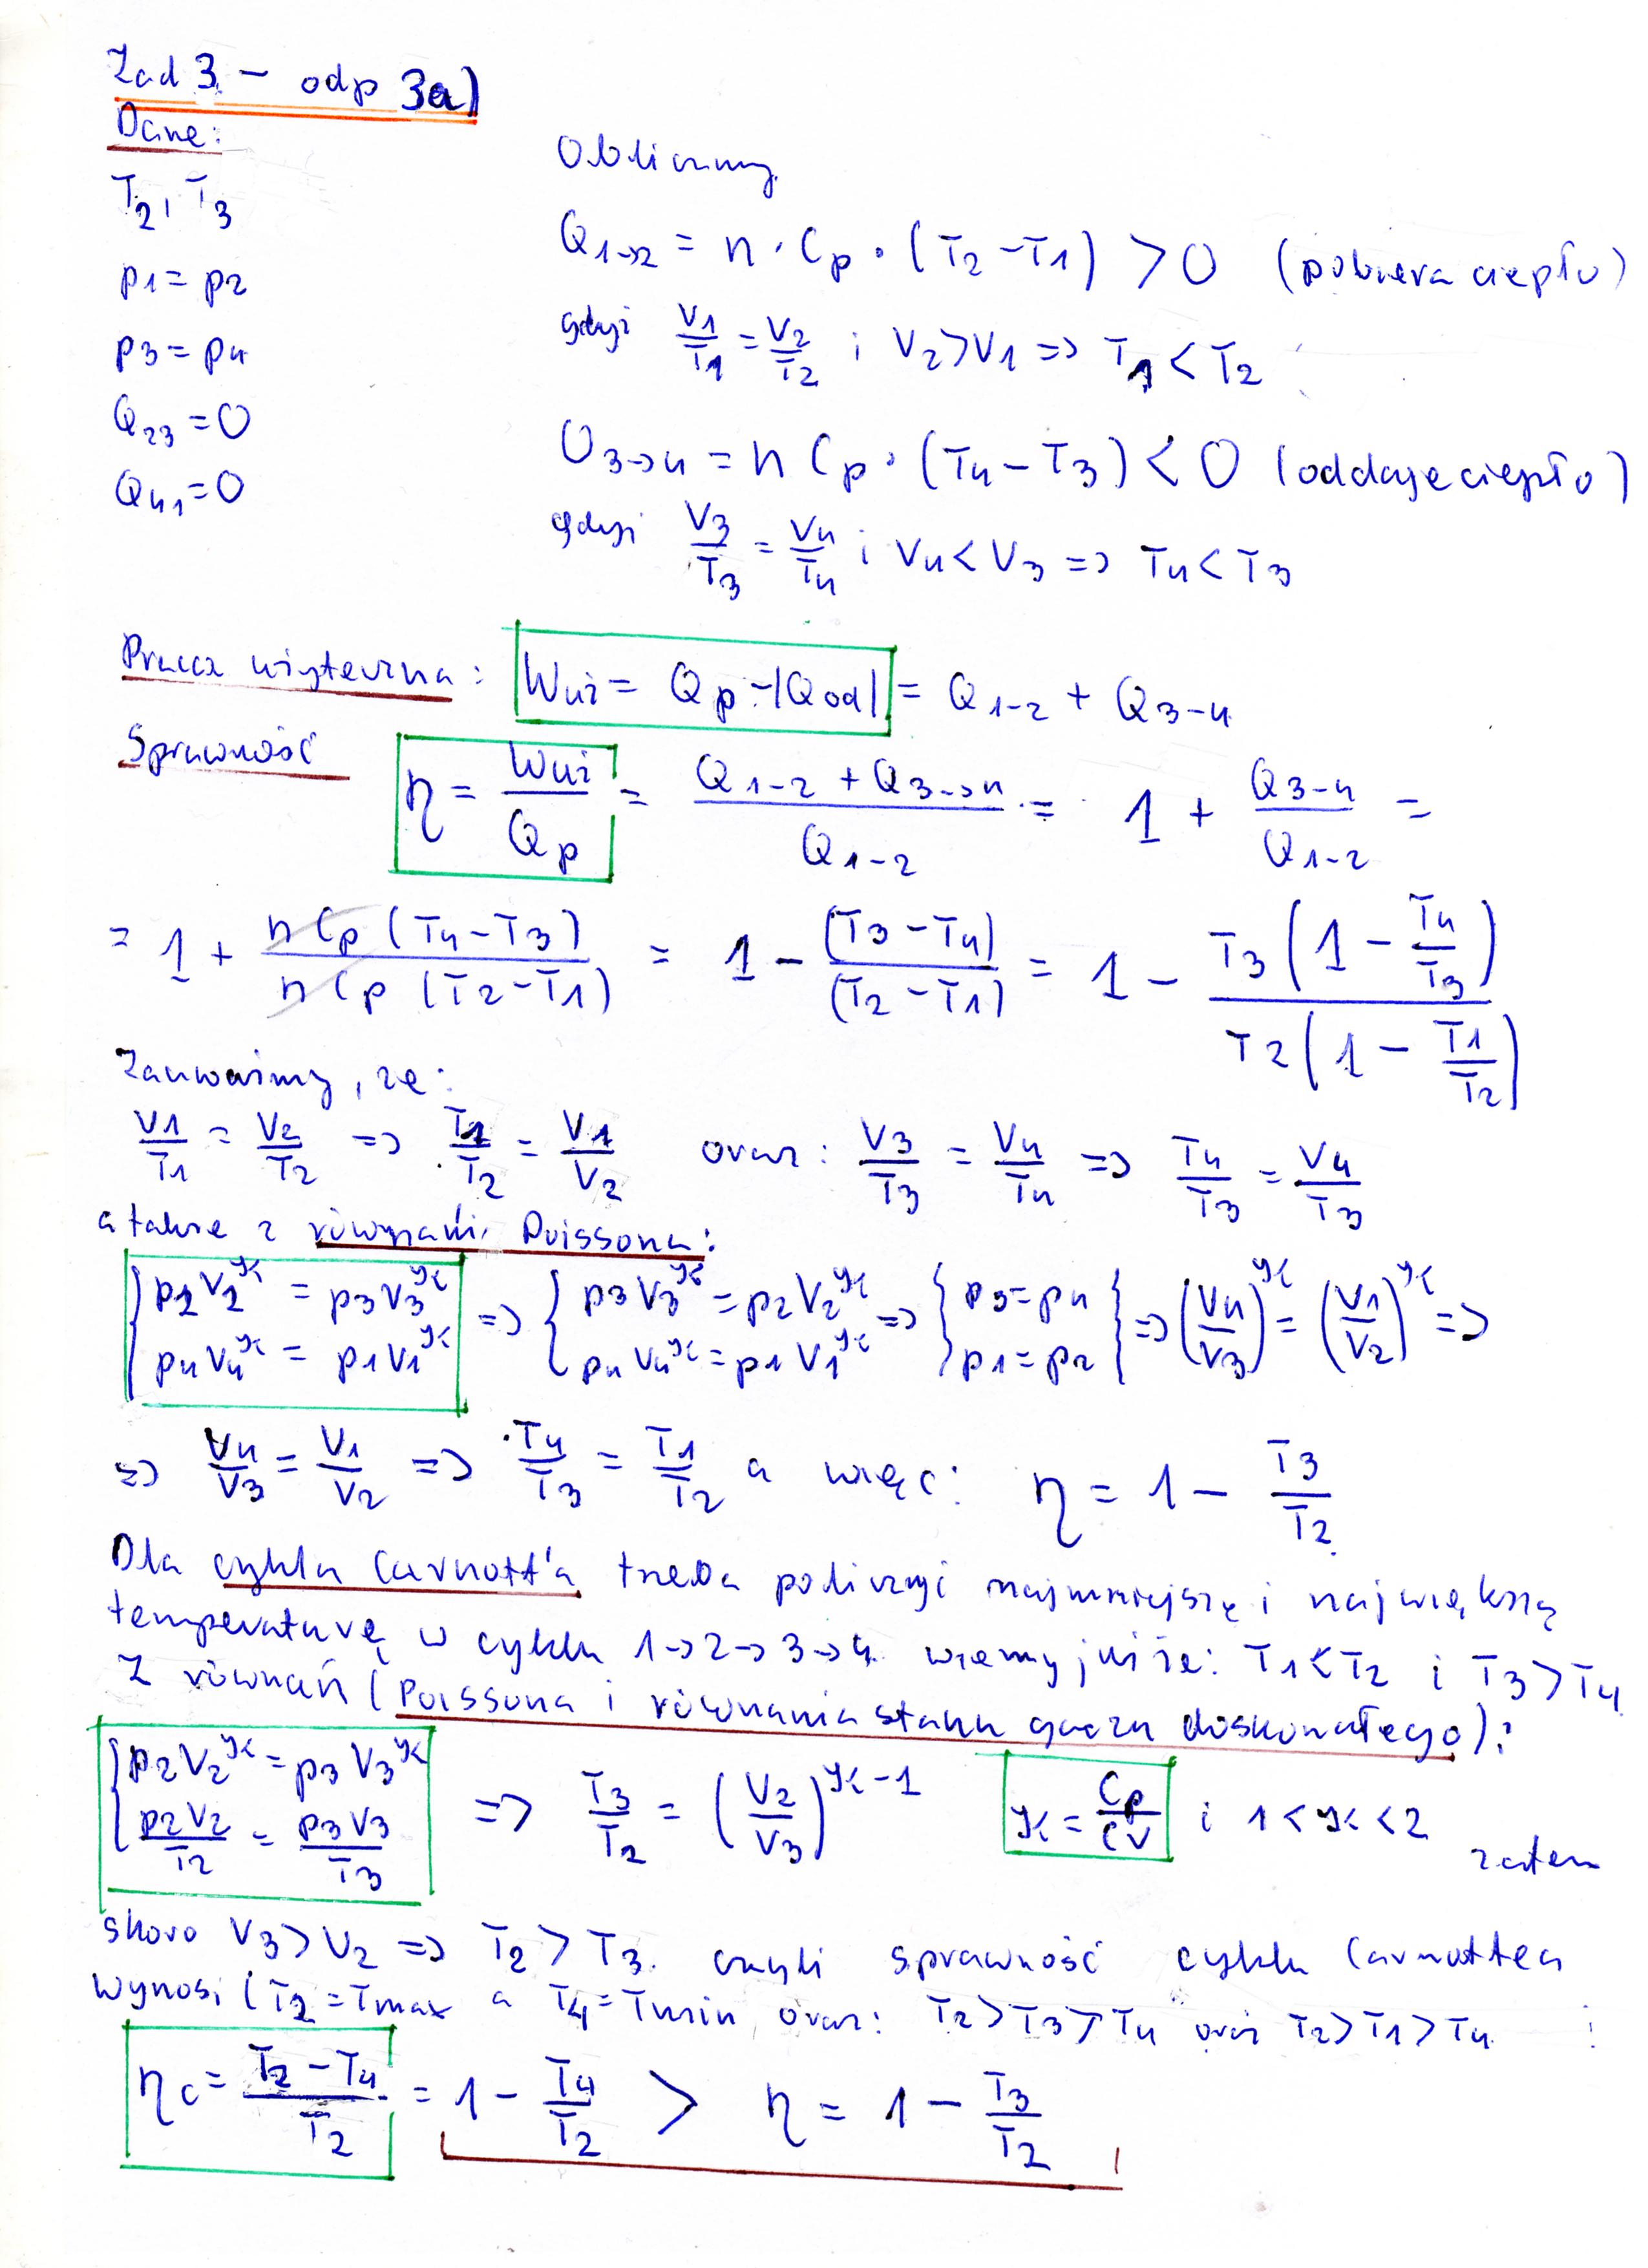 Zad 3 – odp 3a)
Dane:
T2, T3
p1 = p2
p3 = p4
Q23 = 0
Q41 = 0
Obliczmy
Q1→2 = n · Cp · (T2 – T1) > 0 (pobiera ciepło)
gdyż V1/T1 = V2/T2 i V2 > V1 => T1 < T2
Q3→4 = n Cp · (T4 – T3) < 0 (oddaje ciepło)
gdyż V3/T3 = V4/T4 i V4 < V3 => T4 < T3
Praca użyteczna: Wuż = Qp – |Qod| = Q1-2 + Q3-4
Sprawność η = Wuż/Qp = (Q1-2 + Q3→4)/Q1-2 = 1 + Q3-4/Q1-2 =
= 1 + n Cp (T4 – T3)/n Cp (T2 – T1) = 1 – (T3 – T4)/(T2 – T1) = 1 – T3(1 – T4/T3)/T2(1 – T1/T2)
Zauważmy, że:
V1/T1 = V2/T2 => T1/T2 = V1/V2 oraz: V3/T3 = V4/T4 => T4/T3 = V4/T3
a także z równań Poissona:
{p2V2^ϰ = p3V3^ϰ => {p3V3^ϰ = p2V2^ϰ => {p3 = p4} => (V4/V3)^ϰ = (V1/V2)^ϰ =>
{p4V4^ϰ = p1V1^ϰ {p4V4^ϰ = p1V1^ϰ {p1 = p2}
=> V4/V3 = V1/V2 => T4/T3 = T1/T2 a więc: η = 1 – T3/T2
Dla cyklu Carnott'a trzeba policzyć najmniejszą i największą
temperaturę w cyklu 1→2→3→4. wiemy już że: T1 < T2 i T3 > T4
Z równań (Poissona i równania stanu gazu doskonałego):
{p2V2^ϰ = p3V3^ϰ
{p2V2/T2 = p3V3/T3 => T3/T2 = (V2/V3)^ϰ–1 ϰ = Cp/CV i 1 < ϰ < 2 zatem
skoro V3 > V2 => T2 > T3. czyli sprawność cyklu Carnotta
wynosi (T2 = Tmax a T4 = Tmin oraz: T2 > T3 > T4 oraz T2 > T1 > T4
ηc = (T2 – T4)/T2 = 1 – T4/T2 > η = 1 – T3/T2